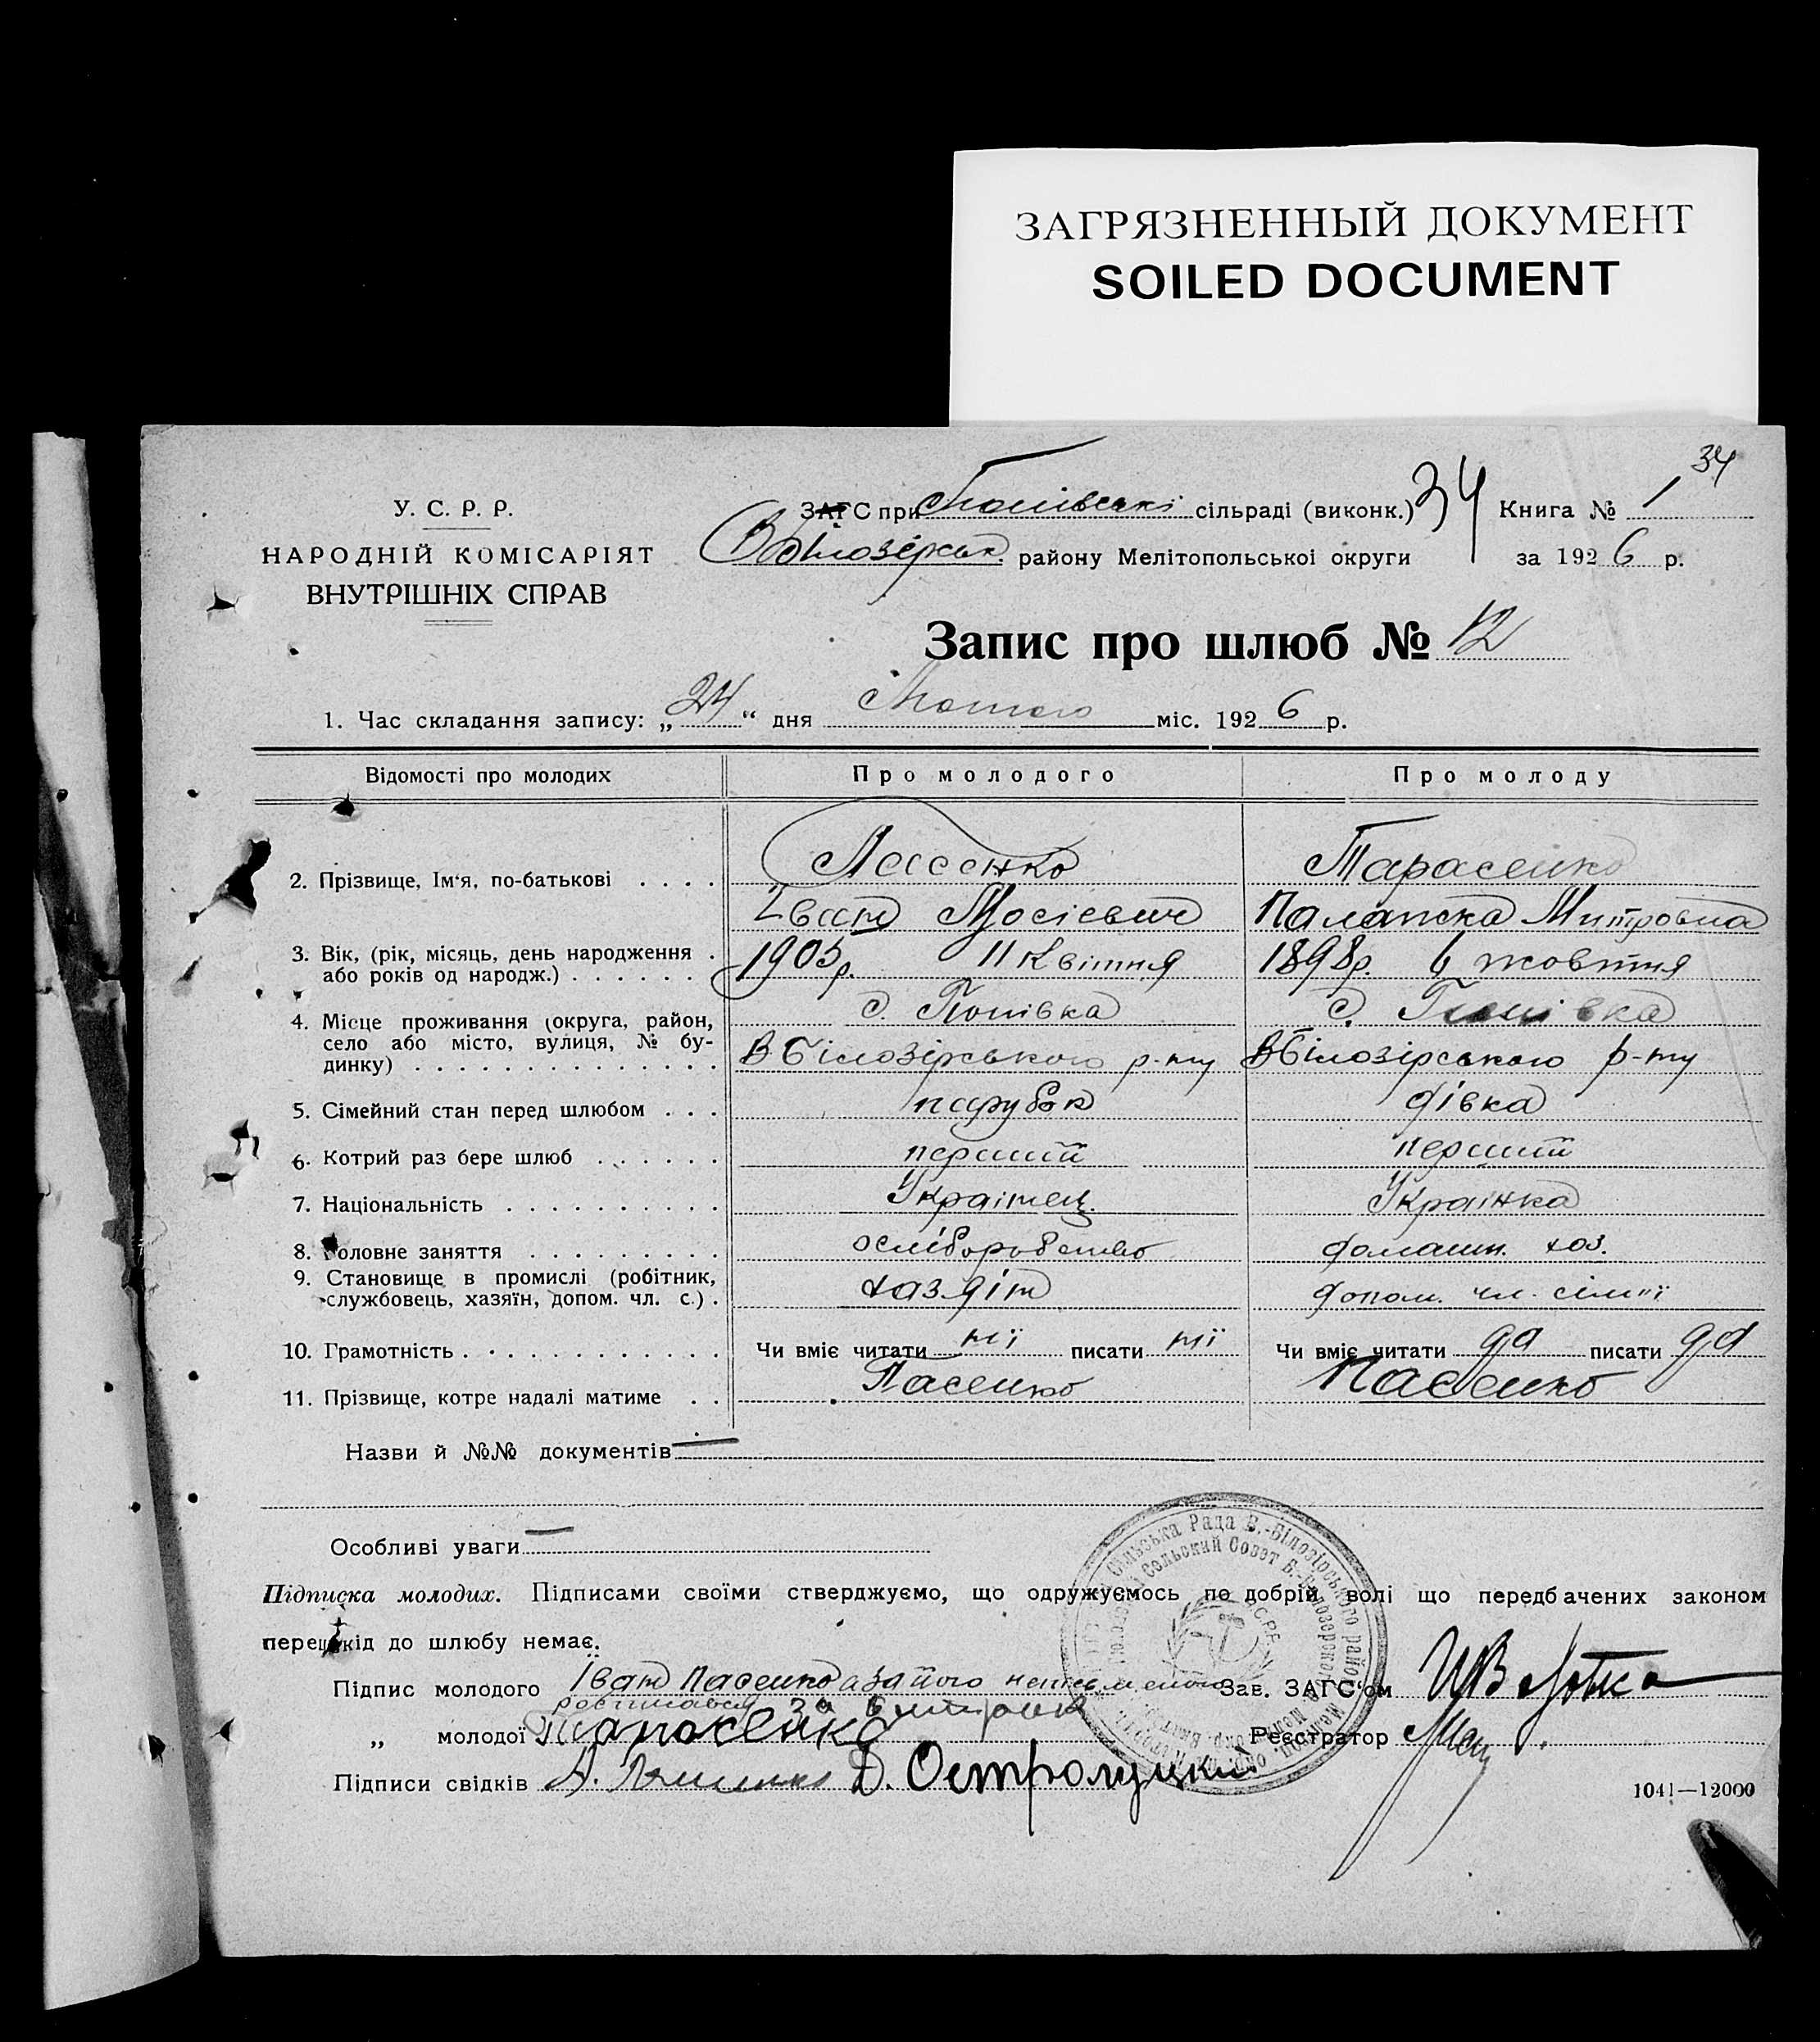 ЗАГРЯЗНЕННЫЙ ДОКУМЕНТ
SOILED DOCUMENT
34
У. С. Р. Р.
НАРОДНІЙ КОМІСАРІЯТ
ВНУТРІШНІХ СПРАВ
ЗАГС при Попівські сільраді (виконк.) 34 Книга № 1
ВБілозерськ. району Мелітопольськоі округи за 1926 р.
Запис про шлюб № 12
1. Час складання запису: „24“ дня Лютого міс. 1926 р.
Відомості про молодих Про молодого Про молоду
2. Прізвище, Ім‘я, по-батькові . . . . Пасенко Тарасенко
Іван Мосієвич Палажка Митровна
3. Вік, (рік, місяць, день народження . 1905р. 11 Квітня 1898р. 6 жовтня
або років од народж.) . . . . . .
4. Місце проживання (округа, район, с. Попівка с. Попівка
село або місто, вулиця, № бу-
динку) . . . . . . . . . . . . . . ВБілозірського р-ну ВБілозірського р-ну
5. Сімейний стан перед шлюбом . . . парубок дівка
6. Котрий раз бере шлюб . . . . . . перший перший
7. Національність . . . . . . . . . . Украінец. Украінка
8. Головне заняття . . . . . . . . . хліборобство домашн. хоз.
9. Становище в промислі (робітник,
службовець, хазяїн, допом. чл. с.) . хазяін допом. чл. сімьї
10. Грамотність . . . . . . . . . . . Чи вміє читати ні писати ні Чи вміє читати да писати да
11. Прізвище, котре надалі матиме . . Пасенко Пасенко
Назви й №№ документів —
Особливі уваги —
Підписка молодих. Підписами своїми стверджуємо, що одружуємось по добрій волі що передбачених законом
перешкід до шлюбу немає.
Підпис молодого Іван Пасенко а за його неписьменого Зав. ЗАГС'ом
росписався
„ молодої Тарасенко Реєстратор
Підписи свідків Д. Остролуцкий
Сільська Рада В.-Білозірського району
Сельский Совет Б.-Белозерского
1041—12000